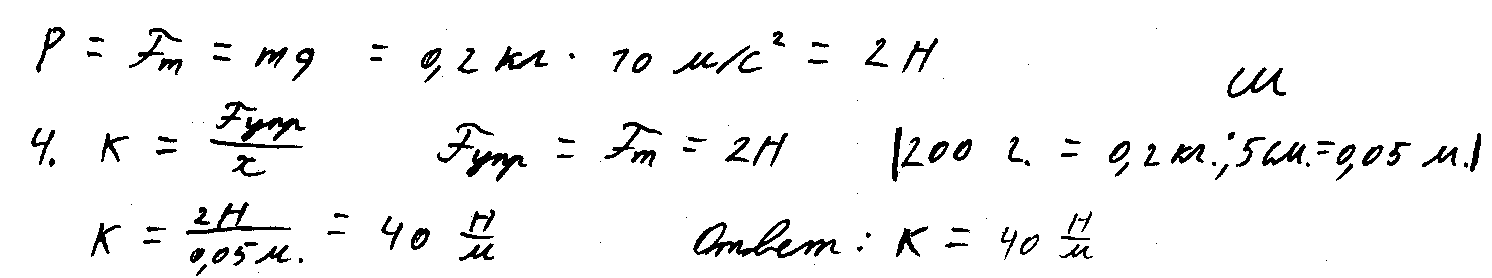 P = Fт = mg = 0,2 кг · 10 м/с² = 2 Н
ш
4. K = Fупр/x Fупр = Fт = 2Н |200 г. = 0,2 кг.; 5см.=0,05 м.|
K = 2Н/0,05м. = 40 Н/м Ответ: K = 40 Н/м